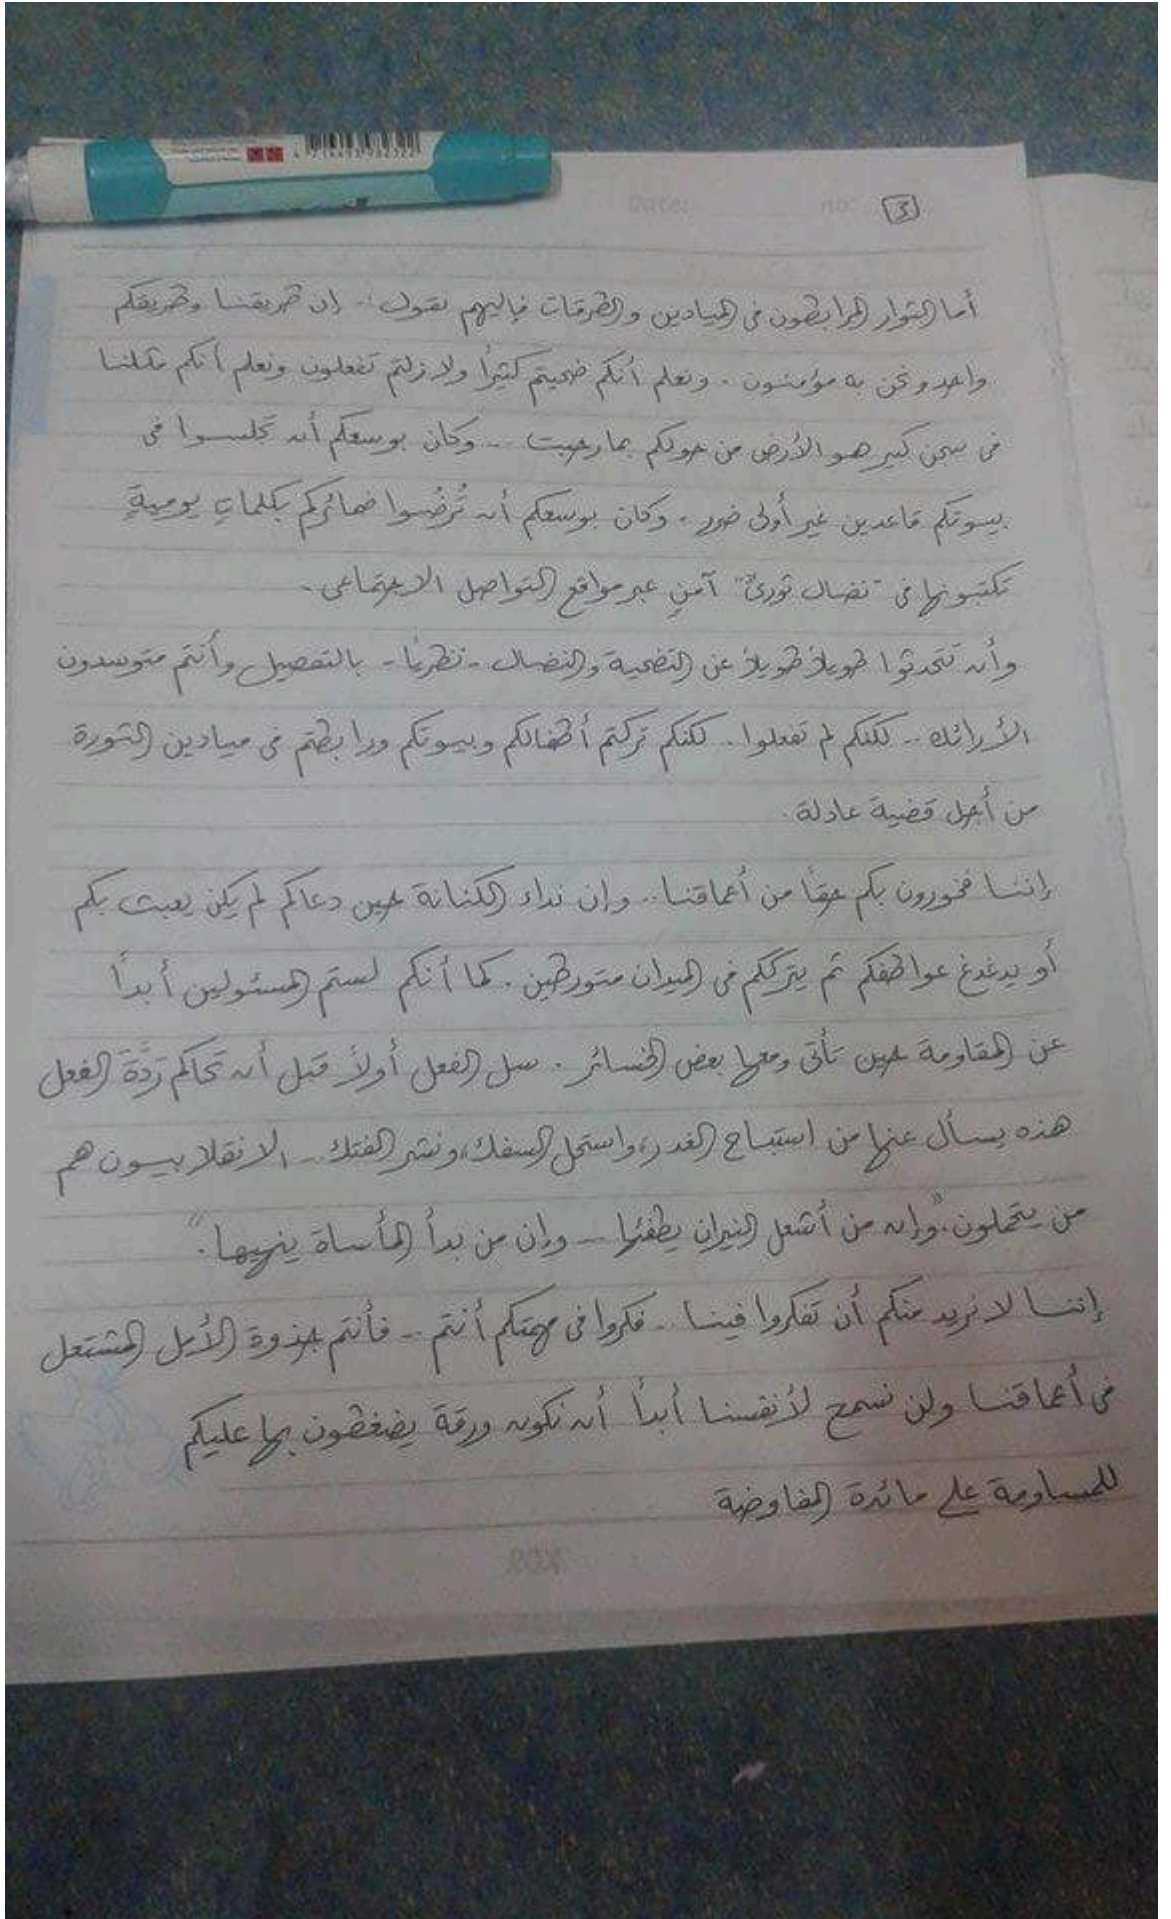 [3]
أما الثوار المرابطون في الميادين والطرقات فإليهم نقول :- إن طريقنا وطريقكم
واحد ونحن به مؤمنون . ونعلم أنكم ضحيتم كثيراً ولا زلتم تفعلون ونعلم أنكم مثلنا
في سجن كبير هو الأرض من حولكم بما رحبت .. وكان بوسعكم أن تجلسوا في
بيوتكم قاعدين غير أولى ضرر . وكان بوسعكم أن تُرضُوا ضمائركم بكلماتٍ يوميةٍ
تكتبونها في "نضال ثوريٍّ" آمنٍ عبر مواقع التواصل الاجتماعى .
وأن تتحدثوا طويلاً طويلاً عن التضحية والنضال - نظرياً - بالتفصيل وأنتم متوسدون
الأرائك .. لكنكم لم تفعلوا .. لكنكم تركتم أطفالكم وبيوتكم ورابطتم في ميادين الثورة
من أجل قضية عادلة .
إننا فخورون بكم حقاً من أعماقنا .. وإن نداء الكنانة حين دعاكم لم يكن يعبث بكم
أو يدغدغ عواطفكم ثم يترككم في الميدان متورطين . كما أنكم لستم المسئولين أبداً
عن المقاومة حين تأتى ومعها بعض الخسائر . سل الفعل أولاً قبل أن تحاكم رَدَّةَ الفعل
هذه يسأل عنها من استباح الغدر، واستحل السفك، ونشر الفتك .. الانقلابيون هم
من يتحملون. "وإن من أشعل النيران يطفئها ... وإن من بدأ المأساة ينهيها ."
إننا لا نريد منكم أن تفكروا فينا .. فكروا في مهمتكم أنتم .. فأنتم جذوة الأمل المشتعل
في أعماقنا ولن نسمح لأنفسنا أبداً أن نكون ورقة يضغطون بها عليكم
للمساومة على مائدة المفاوضة